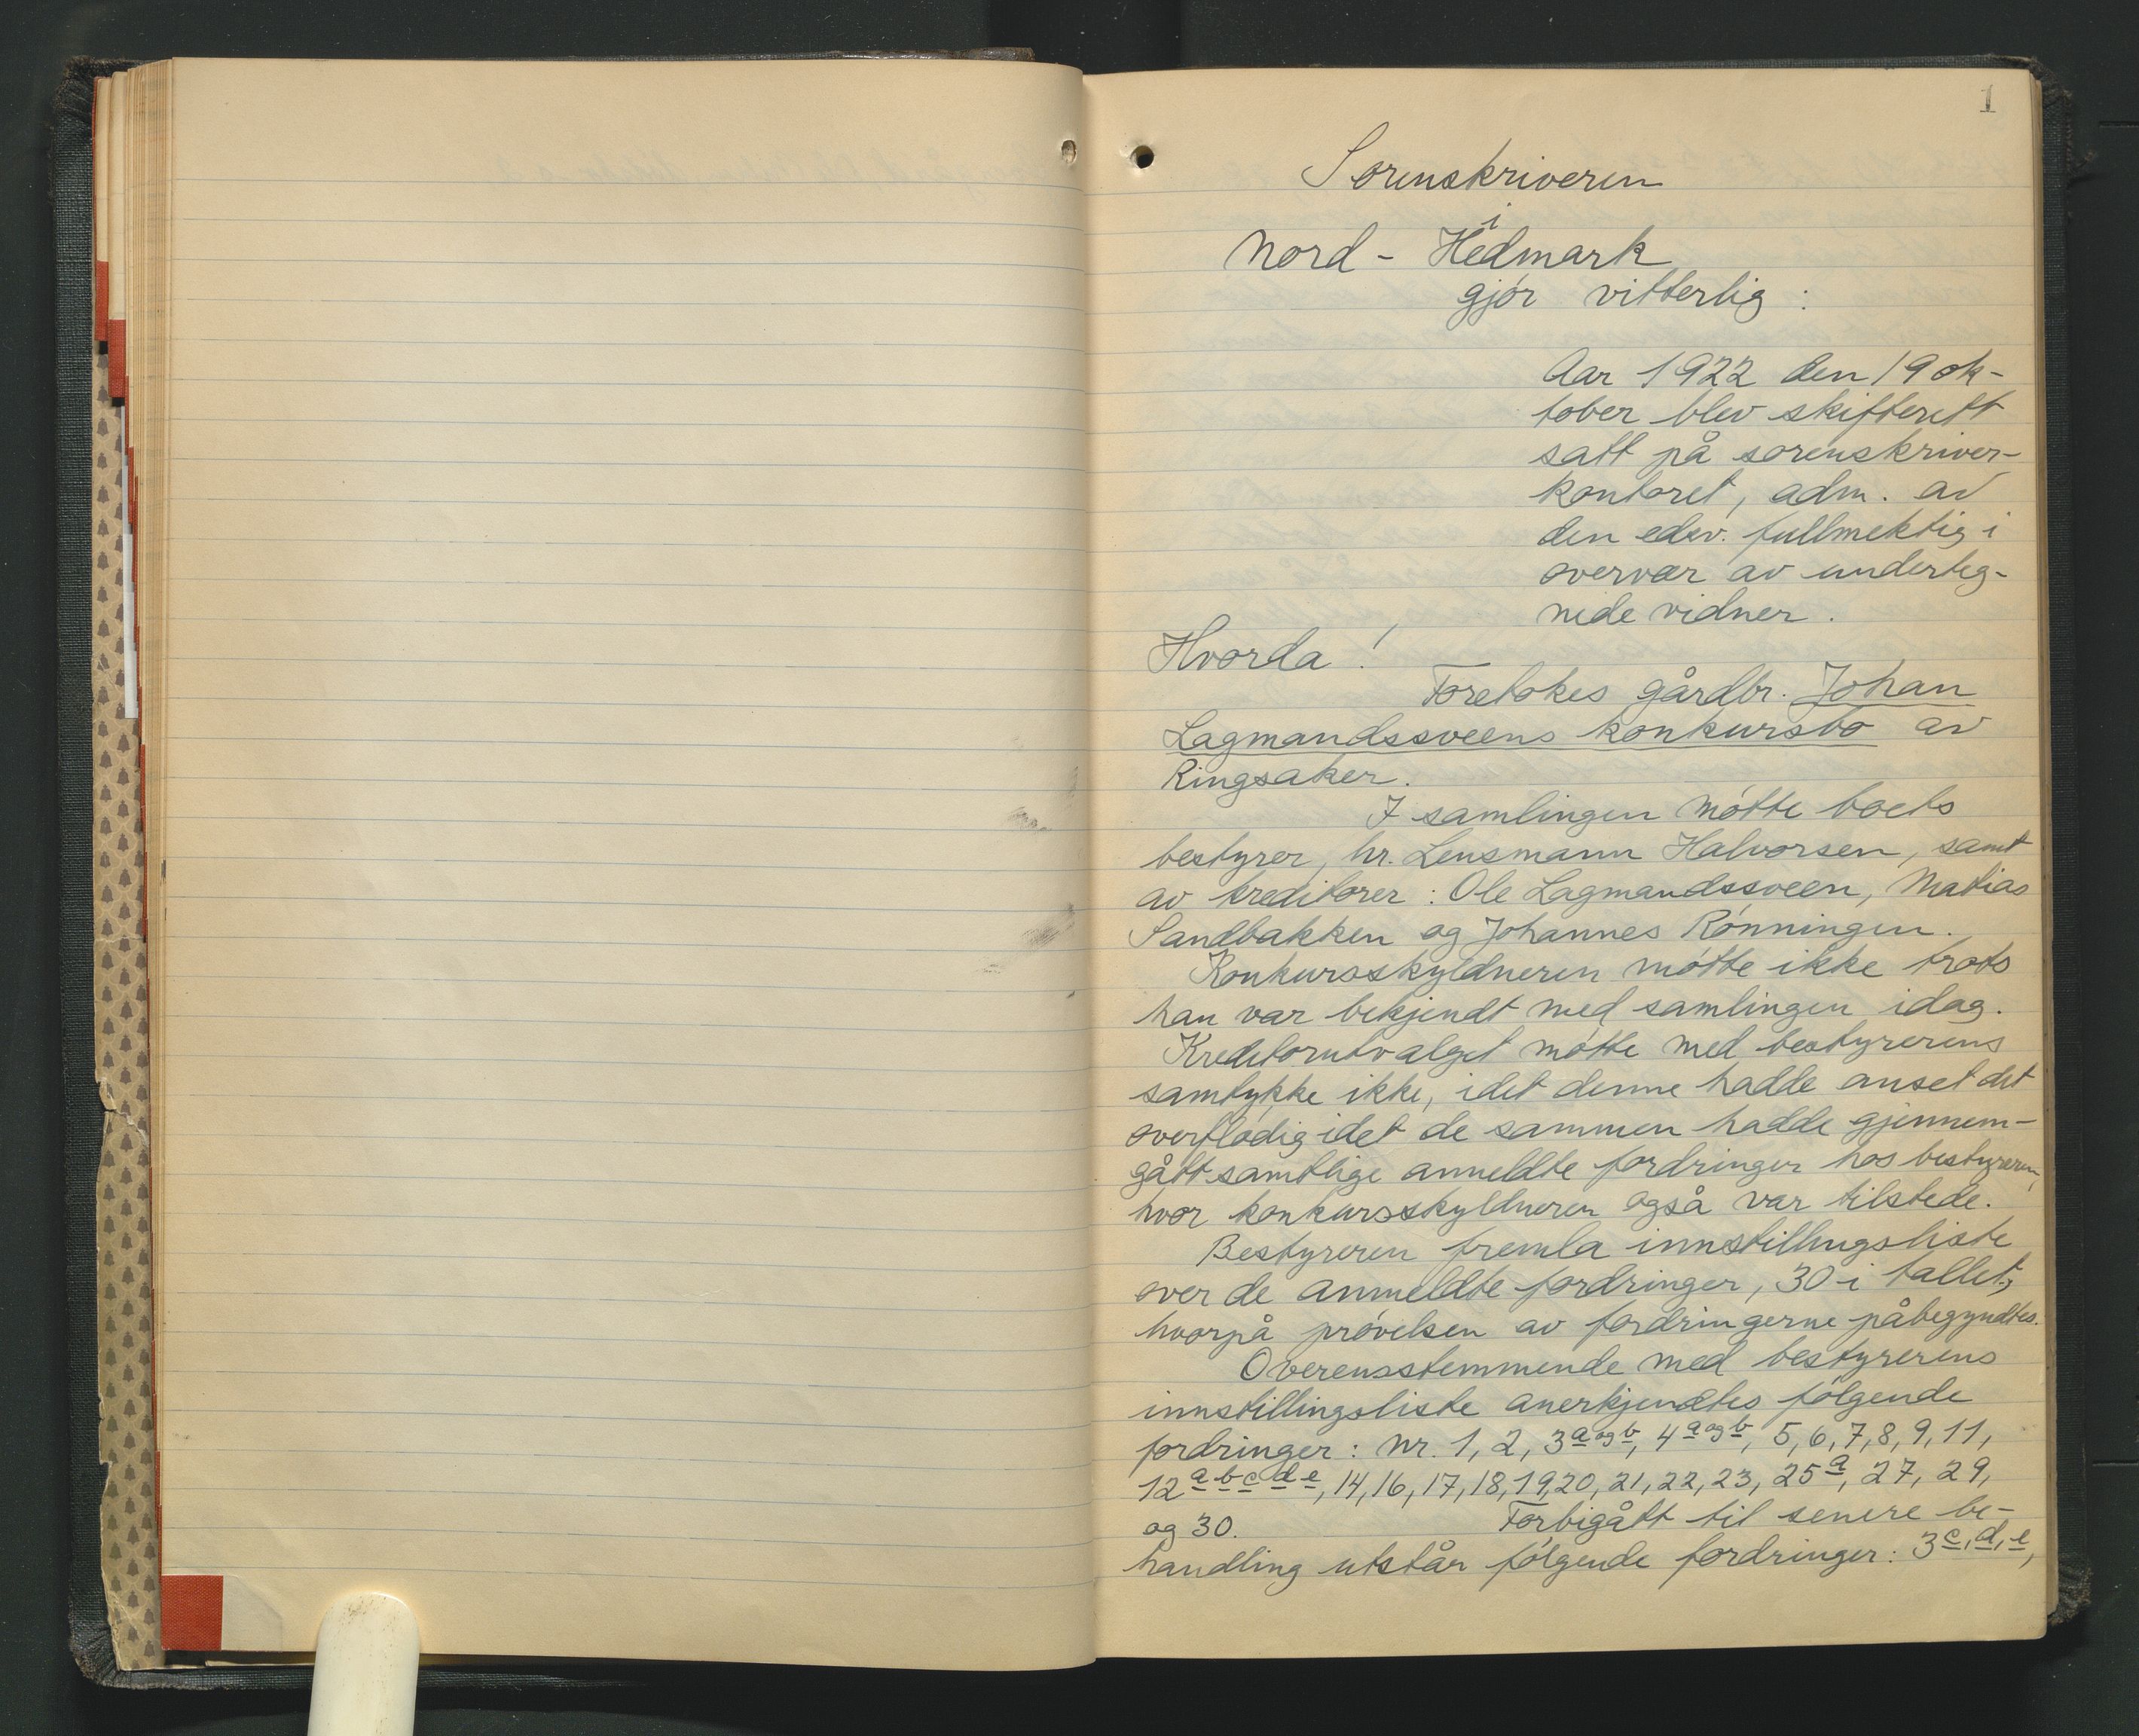 1
Sorenskriveren
i
Nord - Hedmark
gjør vitterlig :
Aar 1922 den 19 ok-
tober blev skifterett
satt på sorenskriver-
kontoret, adm. av
den edsv. fullmektig i
overvær av underteg-
nede vidner.
Hvorda !
Foretokes gårdbr. Johan
Lagmandssveens konkursbo av
Ringsaker.
I samlingen møtte boets
bestyrer, hr. Lensmann Halvorsen, samt
av kreditorer : Ole Lagmandssveen, Matias
Sandbakken og Johannes Rønningen.
Konkursskyldneren møtte ikke trots
han var bekjendt med samlingen idag.
Kreditorutvalget møtte med bestyrerens
samtykke ikke, idet denne hadde anset det
overflødig idet de sammen hadde gjennem-
gått samtlige anmeldte fordringer hos bestyreren,
hvor konkursskyldneren også var tilstede.
Bestyreren fremla innstillingsliste
over de anmeldte fordringer, 30 i tallet,
hvorpå prøvelsen av fordringerne påbegyndtes.
Overensstemmende med bestyrerens
innstillingsliste anerkjendtes følgende
fordringer : Nr. 1, 2, 3 a og b, 4 a og b, 5, 6, 7, 8, 9, 11,
12 a b c d e, 14, 16, 17, 18, 19, 20, 21, 22, 23, 25 a, 27, 29,
og 30. Forbigått til senere be-
handling utstår følgende fordringer : 3 c, d, e,